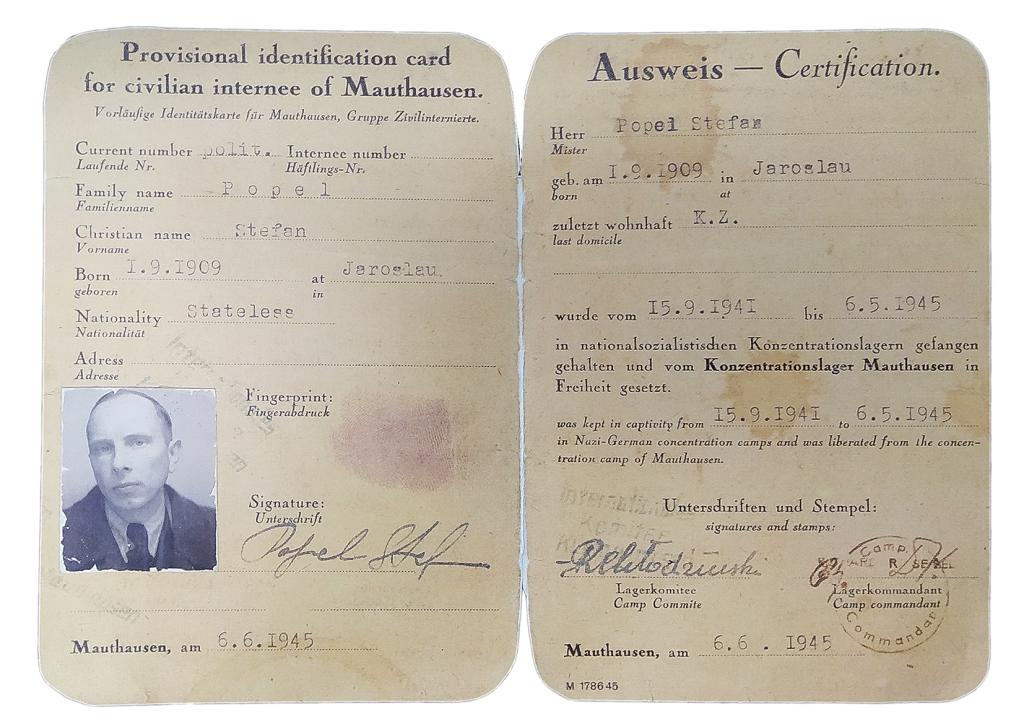 Provisional identification card
for civilian internee of Mauthausen.
Vorläufige Identitätskarte für Mauthausen, Gruppe Zivilinternierte.
Current number polit. Internee number
Laufende Nr. Häftlings-Nr.
Family name Popel
Familienname
Christian name Stefan
Vorname
Born I.9.1909 at Jaroslau.
geboren in
Nationality Stateless
Nationalität
Adress
Adresse
Fingerprint:
Fingerabdruck
Signature:
Unterschrift
Popel Stef
Mauthausen, am 6.6.1945
Ausweis — Certification.
Herr Popel Stefan
Mister
geb. am I.9.1909 in Jaroslau
born at
zuletzt wohnhaft K.Z.
last domicile
wurde vom 15.9.1941 bis 6.5.1945
in nationalsozialistischen Konzentrationslagern gefangen
gehalten und vom Konzentrationslager Mauthausen in
Freiheit gesetzt.
was kept in captivity from 15.9.1941 to 6.5.1945
in Nazi-German concentration camps and was liberated from the concen-
tration camp of Mauthausen.
Unterschriften und Stempel:
signatures and stamps:
Camp
Lagerkomitee Lagerkommandant
Camp Commite Camp commandant
Commandant
Mauthausen, am 6.6. 1945
M 178645